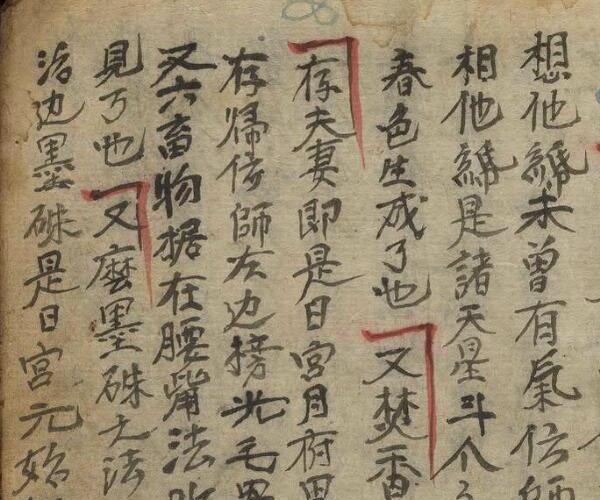 想他縁未曾有氣伝師
相他縁是諸天星斗个
春色生成了也又焚香
存夫妻即是日宮月府
存帰依師左边接光毛
又六畜物椐在腰背法
見了也又麼墨硃七法
活边墨硃是日宮元始